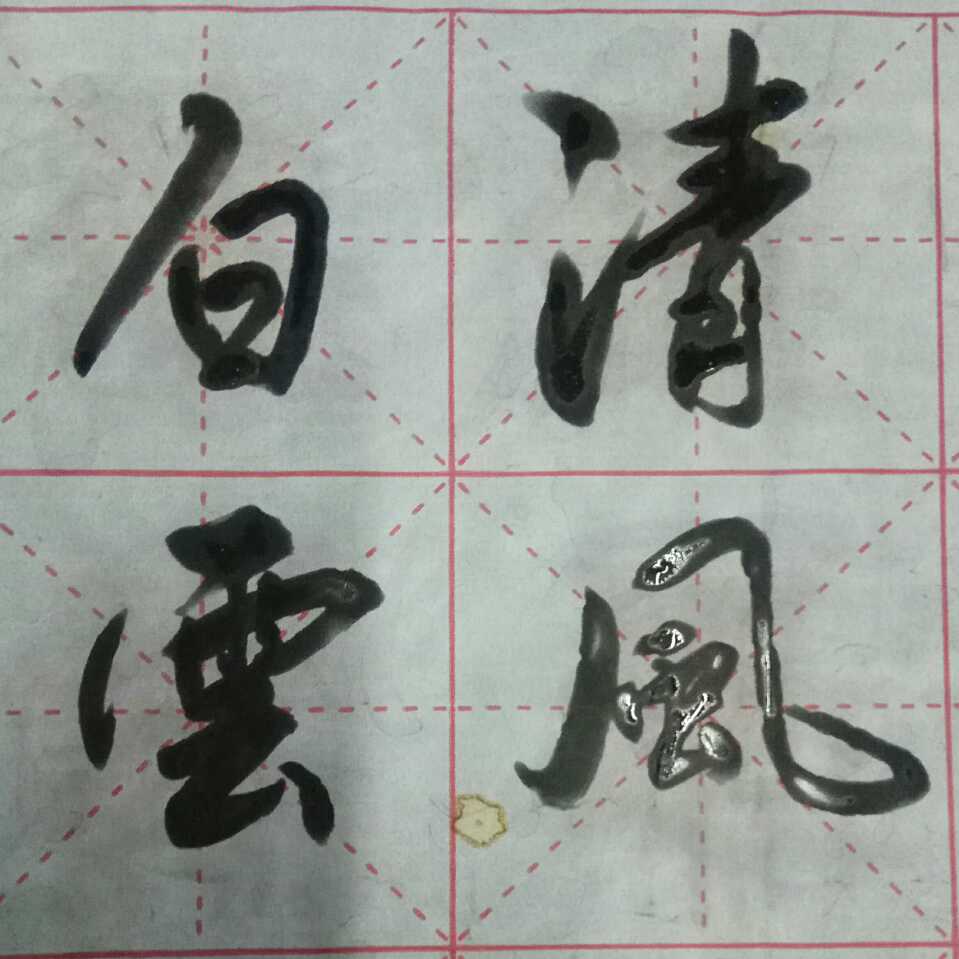 清風
白雲